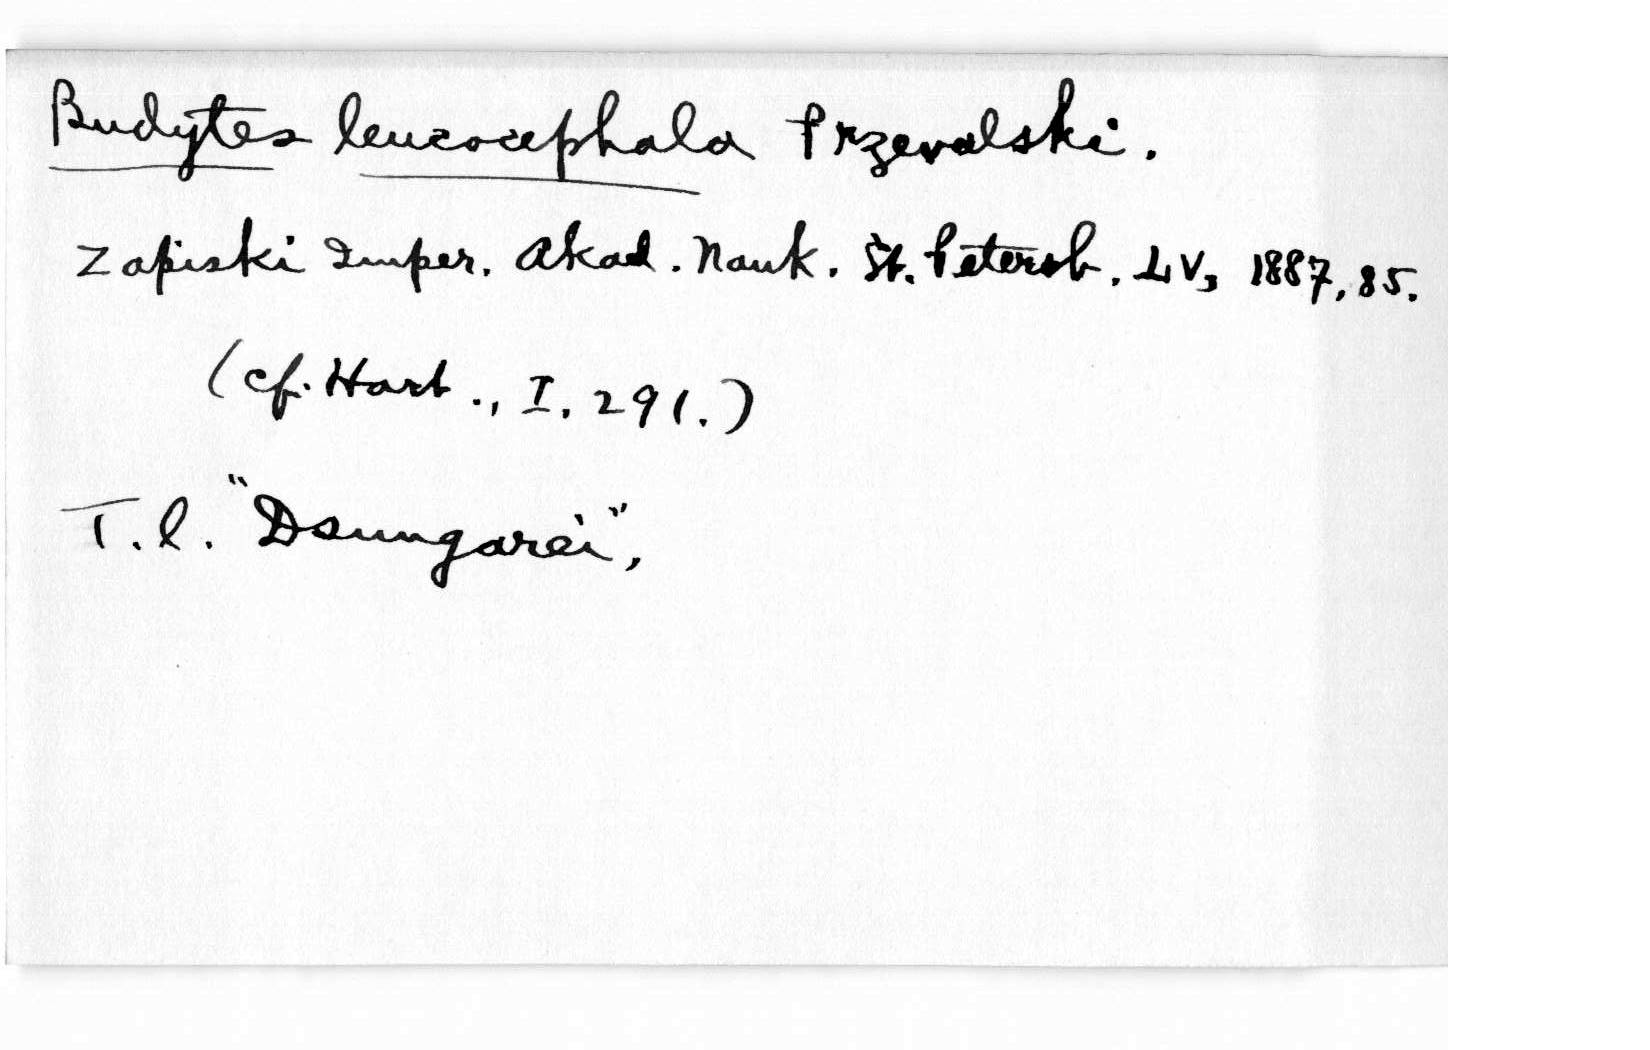 Budytes leucocephala Przevalski.
Zapiski Imper. Akad. Nauk. St. Petersb. LV, 1887, 85.
(cf. Hart., I. 291.)
T.l. "Dsungarei",